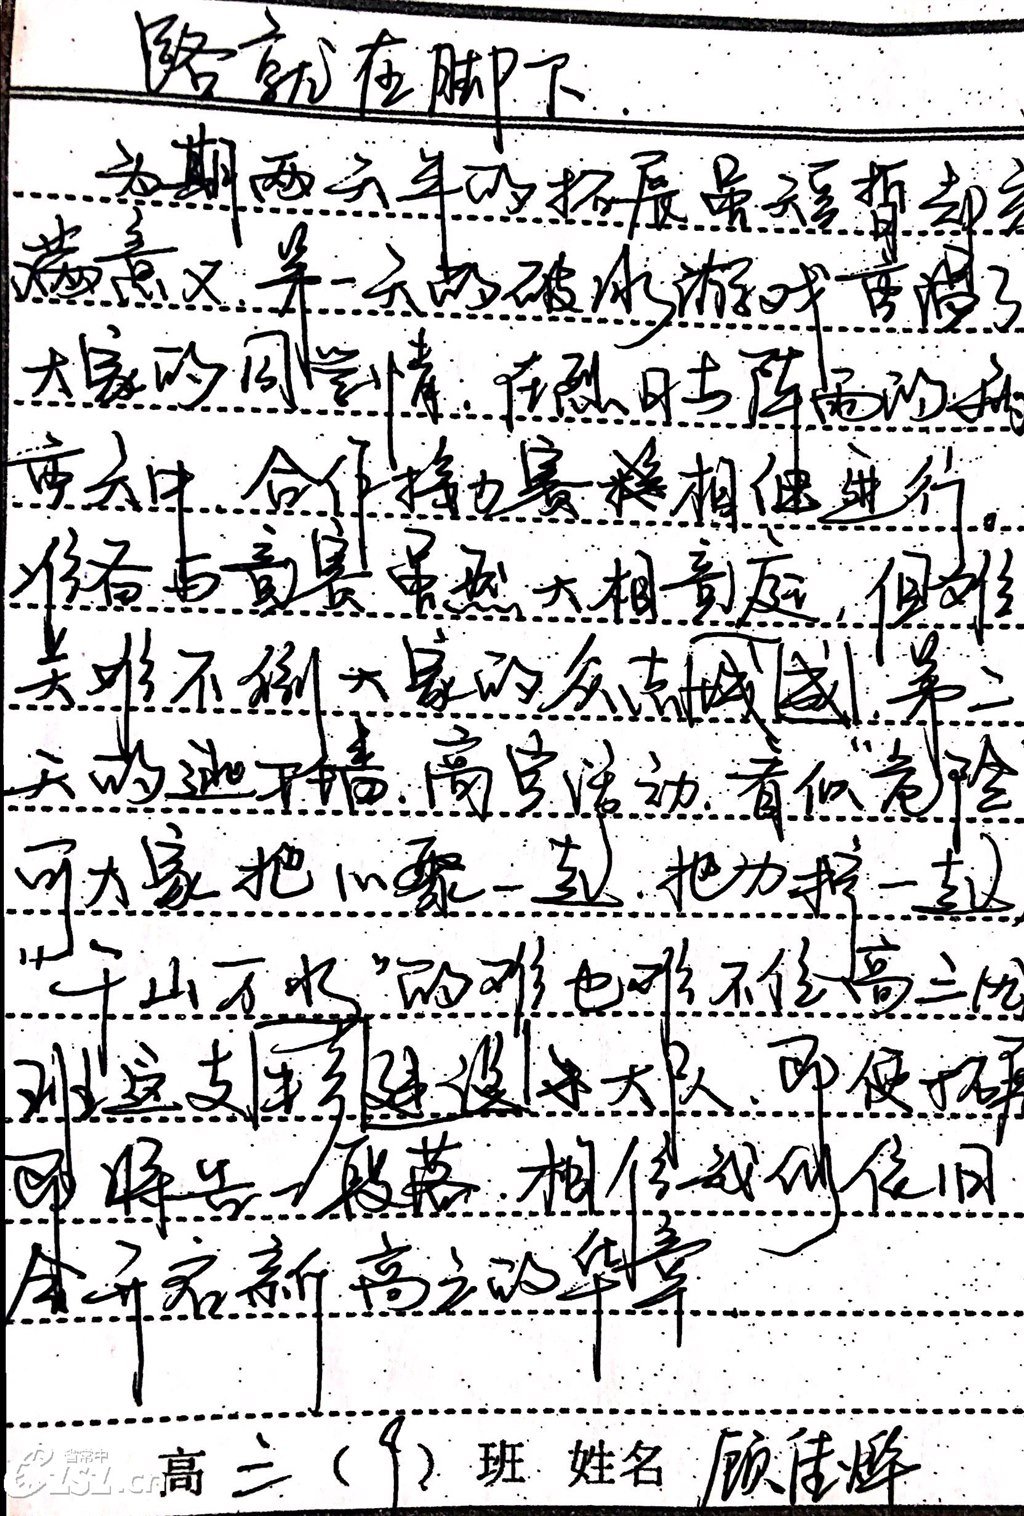 路就在脚下
为期两天半的拓展虽短暂却充
满意义,第一天的破冰游戏覃满了
大家的同学情.在烈日与阵雨的
变天中,合作接力赛 相继进行。
准备与竞赛虽然大相竟庭,但难
关难不倒大家的众志城成.第二
天的逃生墙.高空活动.看似"危险
可大家把心聚一起.把力拧一起
"千山万水"的难也难不住高三
班这支 建设 大队.即便拓
即将告一段落.相信我们依旧
会开启新高三的华章
高三(9)班 姓名 顾佳烨
省常中